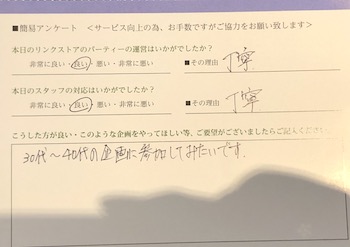 ■簡易アンケート ＜サービス向上の為、お手数ですがご協力をお願い致します＞
本日のリンクストアのパーティーの運営はいかがでしたか?
非常に良い・良い・悪い・非常に悪い ■その理由 丁寧
本日のスタッフの対応はいかがでしたか?
非常に良い・良い・悪い・非常に悪い ■その理由 丁寧
こうした方が良い・このような企画をやってほしい等、ご要望がございましたらご記入ください
30代〜40代の企画に参加してみたいです。